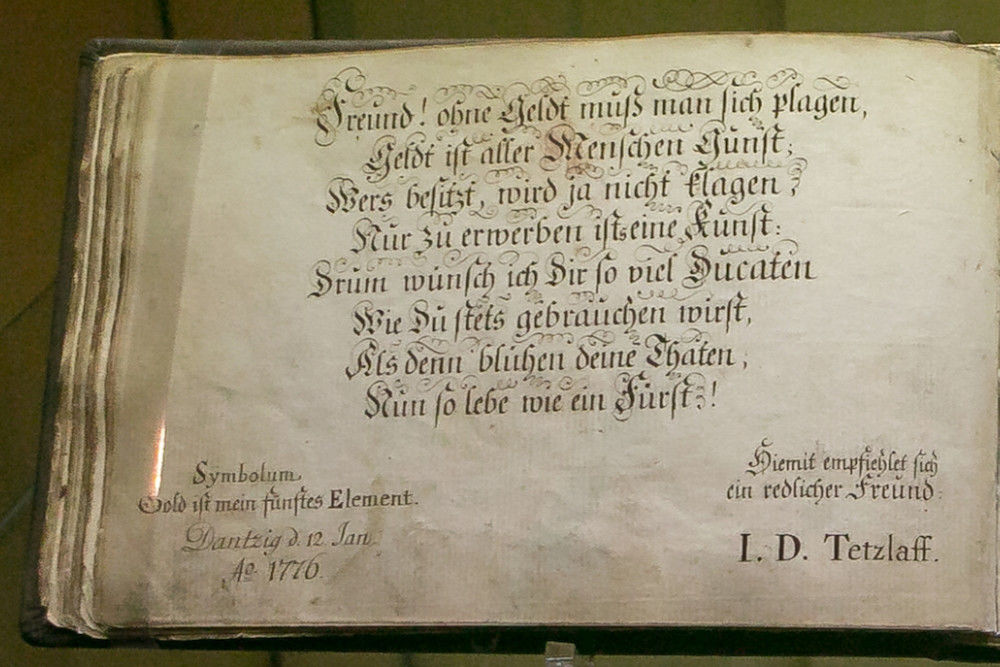 Freund! ohne Geldt muß man sich plagen,
Geldt ist aller Menschen Gunst;
Wers besitzt, wird ja nicht klagen,
Nur zu erwerben ists eine Kunst:
Drum wünsch ich Dir so viel Ducaten
Wie Du stets gebrauchen wirst,
Als denn blühen deine Thaten,
Nun so lebe wie ein Fürst!
Symbolum.
Gold ist mein fünftes Element.
Dantzig d. 12. Jan.
Ao. 1776.
Hiemit empfiehlet sich
ein redlicher Freund:
I. D. Tetzlaff.